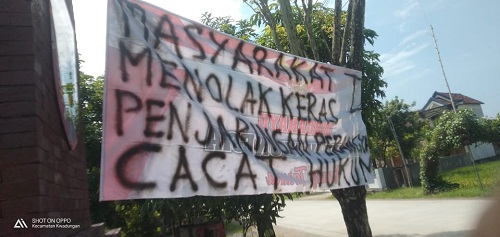 MASYARAKAT
MENOLAK KERAS
PENJARINGAN
CACAT HUKUM
SHOT ON OPPO
Kecamatan Kwadungan